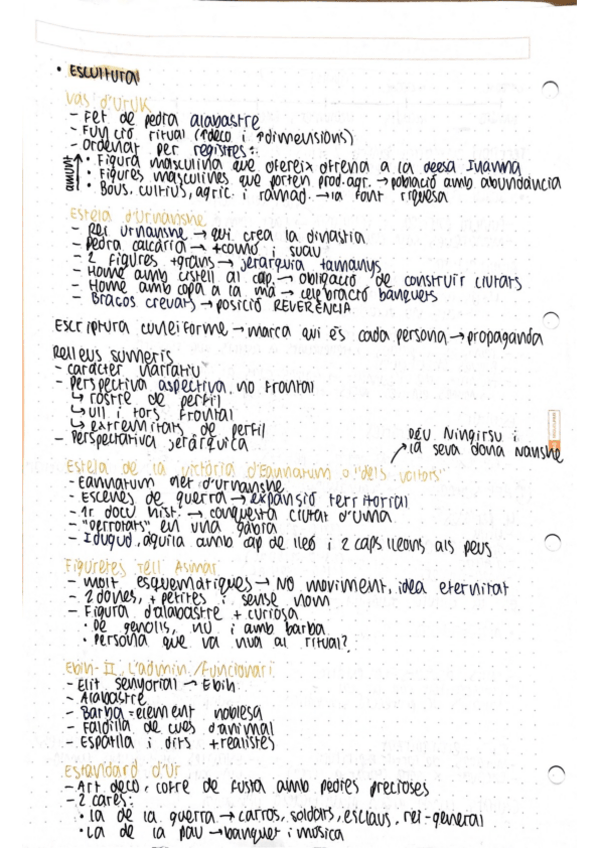 • ESCULTURA
Vas d'Uruk
- Fet de pedra alabastre
- Funció ritual (↑deco i ↑dimensions)
- Ordenat per registres:
amunt
• Figura masculina que ofereix ofrena a la deesa Inanna
• Figures masculines que porten prod. agr. → població amb abundància
• Bous, cultius, agric. i ramad. → la font riquesa
Estela d'Urnanshe
- Rei Urnanshe → qui crea la dinastia
- Pedra calcària → +comú i suau
- 2 figures +grans → jerarquia tamanys
- Home amb cistell al cap → obligació de construir ciutats
- Home amb copa a la mà → celebració banquets
- Braços creuats → posició REVERÈNCIA
Escriptura cuneïforme → marca qui és cada persona → propaganda
Relleus sumeris
- caràcter narratiu
- Perspectiva aspectiva, no frontal
↳ rostre de perfil
↳ ull i tors frontal
↳ extremitats de perfil
- Perspectativa jeràrquica
Déu Ningirsu i
la seva dona Nanshe
Estela de la victòria d'Eannatum o "dels voltors"
- Eannatum nét d'Urnanshe
- Escenes de guerra → expansió territorial
- 1r docu hist. → conquesta ciutat d'Uma
- "Derrotats" en una gàbia
- Idugud, àguila amb cap de lleó i 2 caps lleons als peus
Figuretes Tell Asmar
- Molt esquemàtiques → NO moviment, idea eternitat
- 2 dones, + petites i sense nom
- Figura d'alabastre + curiosa
• De genolls, nu i amb barba
• Persona que va nua al ritual?
Ebih-II, L'admin./Funcionari
- Elit senyorial → Ebih
- Alabastre
- Barba = element noblesa
- Faldilla de cues d'animal
- Espatlla i dits +realistes
Estandard d'Ur
- Art deco, cofre de fusta amb pedres precioses
- 2 cares:
• La de la guerra → carros, soldats, esclaus, rei-general
• La de la pau → banquet i música